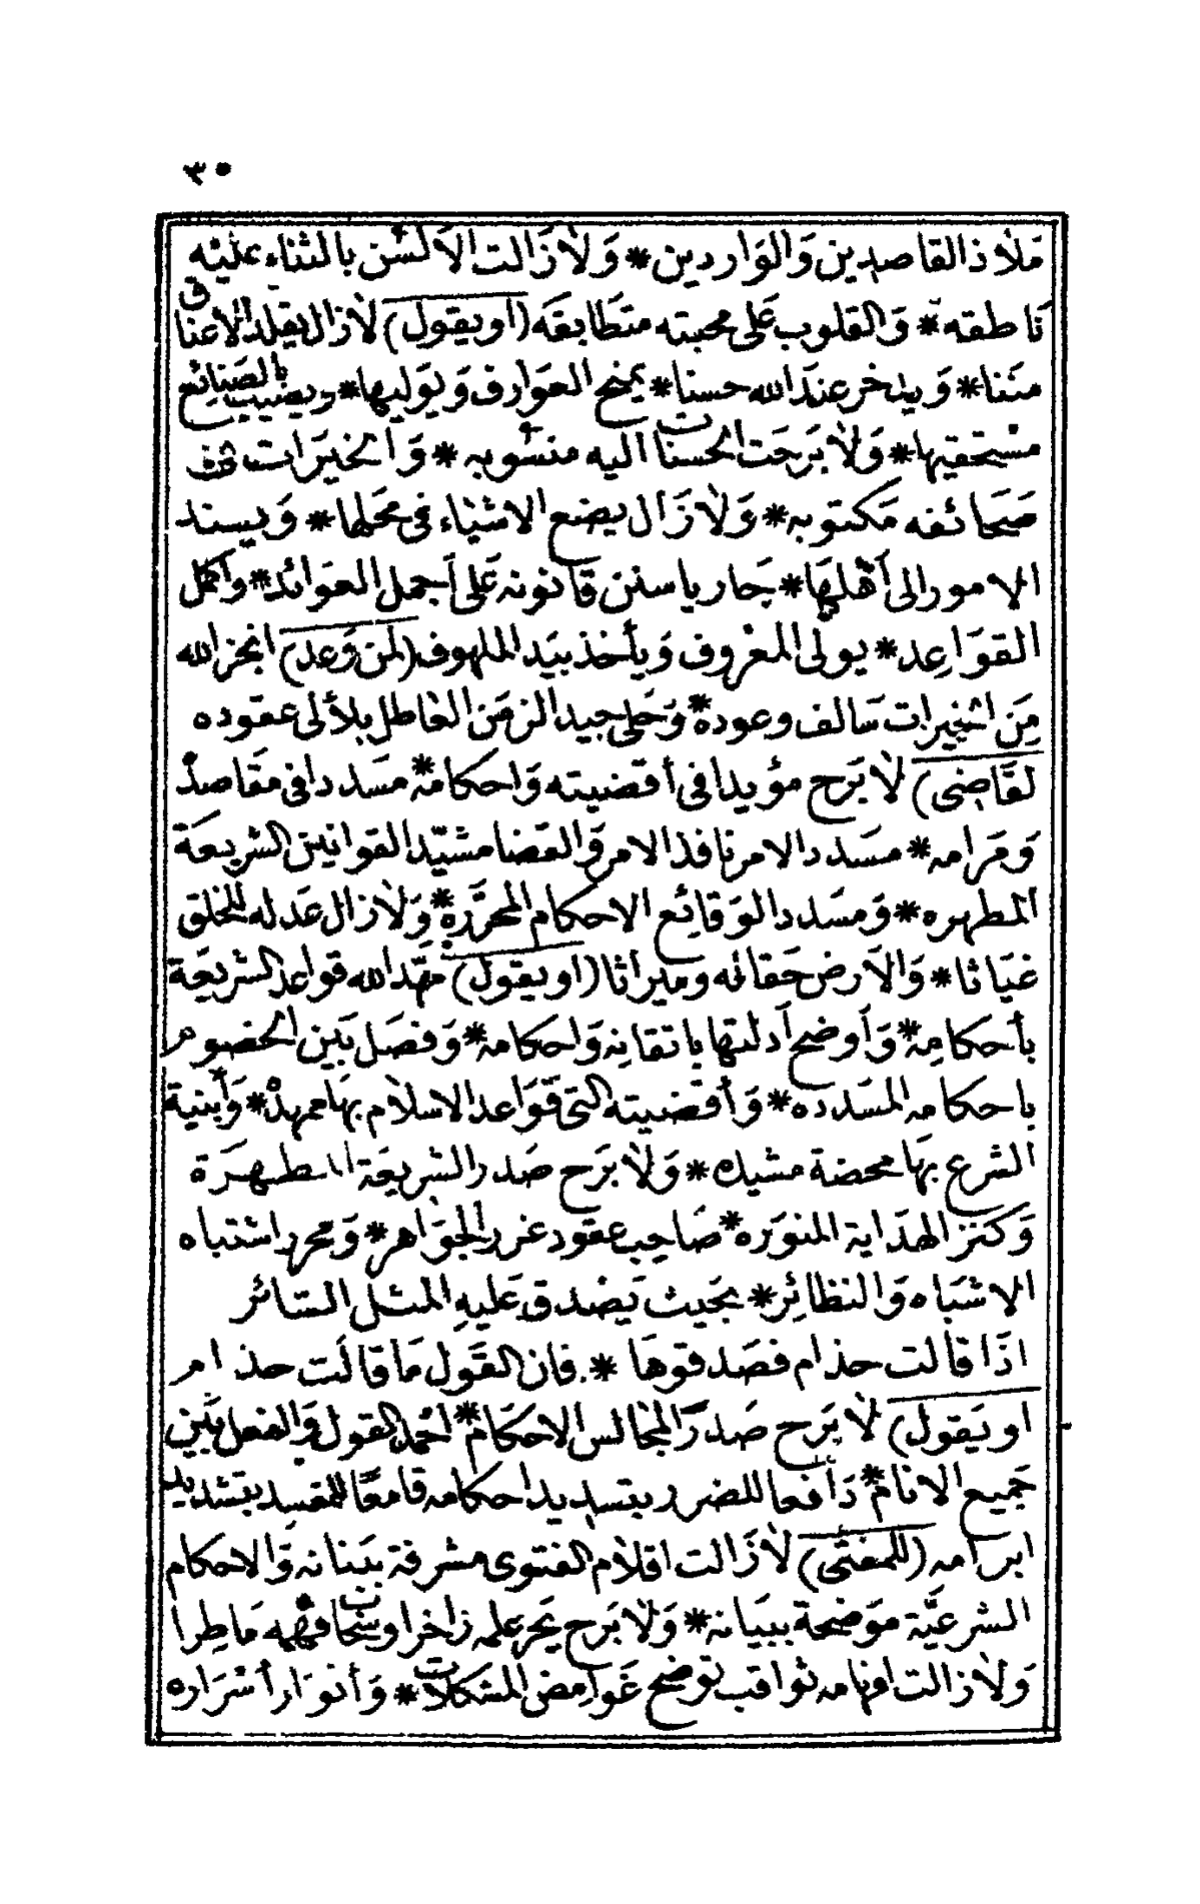 ٣٠
مَلاذ القاصدين وَالوَاردين * وَلاَ زَالت الاَلسُن بالثناء عليْه
نَاطقه * وَالقلوب عَلى محبته متطَابقَه (او يقول) لاَ زال يقلد الاَعناق
مننا * وَيدخر عندَ الله حسنا * يمنح العوَارف وَيوَليها * ويصيب بالصَنائع
مسْتحقيها * وَلاَ بَرحَت الحسنات اليه منسُوبه * وَالخيرَات فى
صَحَائفه مَكتوبه * وَلاَ زَال يضع الاشيَاء فى محَلها * وَيسند
الامور الى أهْلهَا * جَاريا سنن قانونه عَلى أجمل العوَائد * وأكمل
القوَاعِد * يولى المعْروف وَيأخذ بيَد الملهوف (لمن وَعد) انجز الله
مِنَ الخيرات سَالف وعوده * وَحَلى جيد الزمَن العَاطل بلألى عقوده
لقَاضى) لاَ بَرح مؤيدا فى أقضيته وَاحكامه * مسَددا فى مقَاصده
وَمَرامه * مسَدد الامر نافذ الامر وَالقضا مشيّد القوانين الشريعَة
المطهره * وَمسَدد الوَقائع الاحكام المحرَّرة * وَلاَ زال عَدله للخلق
غيَاثا * وَالاَرض حَقائه وميراثا (او يقول) مهَّد الله قواعد الشريعَة
بأحكامِه * وَأوضح أدلتها باتقانِه وَاحكامه * وَفصَل بَين الخصوم
باحكامه المسَدده * وَأقضيته التى قوَاعد الاسلاَم بهَا ممهدة * وَأبنية
الشرع بهَا محضة مشيده * وَلاَ بَرح صَدر الشريعَة المطهرَة
وَكنز الهدَاية المنوَره * صَاحِب عقود غرر الجوَاهر * وَمحرر اشتباه
الاشبَاه وَالنظائِر * بحَيث يَصْدق عَليهِ المثل السَائر
اذَا قالت حذام فصَدقوهَا * فان القَول مَا قالَت حذام
او يَقول) لاَ بَرح صَدرَ المجَالس الاحكَام * احْمد القول وَالفعل بَين
جَميع الانام * دَافعا للضرر بتسديد احكامه قامعًا للمفسد بتشديد
ابرَامه (للمفتى) لاَ زَالت اقلاَم الفتوى مشرفة ببَنانه وَالاحكام
الشرعيَّة موَضحة ببيَانه * وَلاَ بَرح بَحر علمه زاخرا وسَحاب فهْمه مَاطِرا
وَلاَ زالت افهامه ثواقب توضح غَوامِض المشكلات * وَأنوَار أسْراره